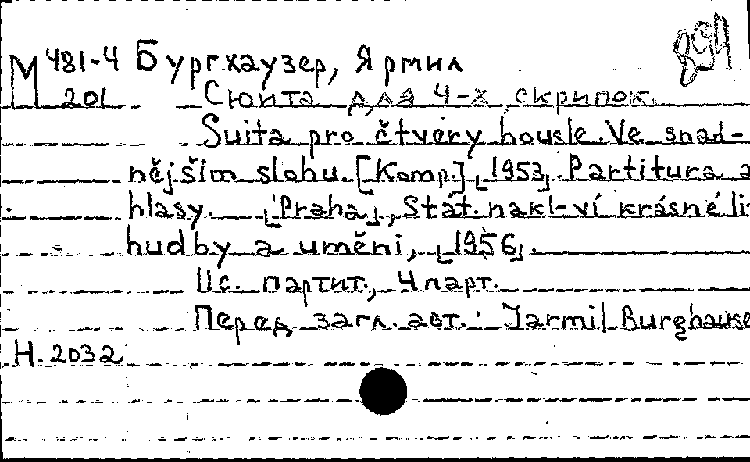 М 481-4 Бургхаузер, Ярмил
201 Сюита для 4-х скрипок.
Suita pro čtvery housle. Ve snad-
nějším slohu. [Komp.] [1953]. Partitura a
hlasy. [Praha], Stát. nakl-ví krásné li
hudby a uměni, [1956].
11с. партит., 4 парт.
Перед загл. авт.: Jarmil Burghause
Н. 2032